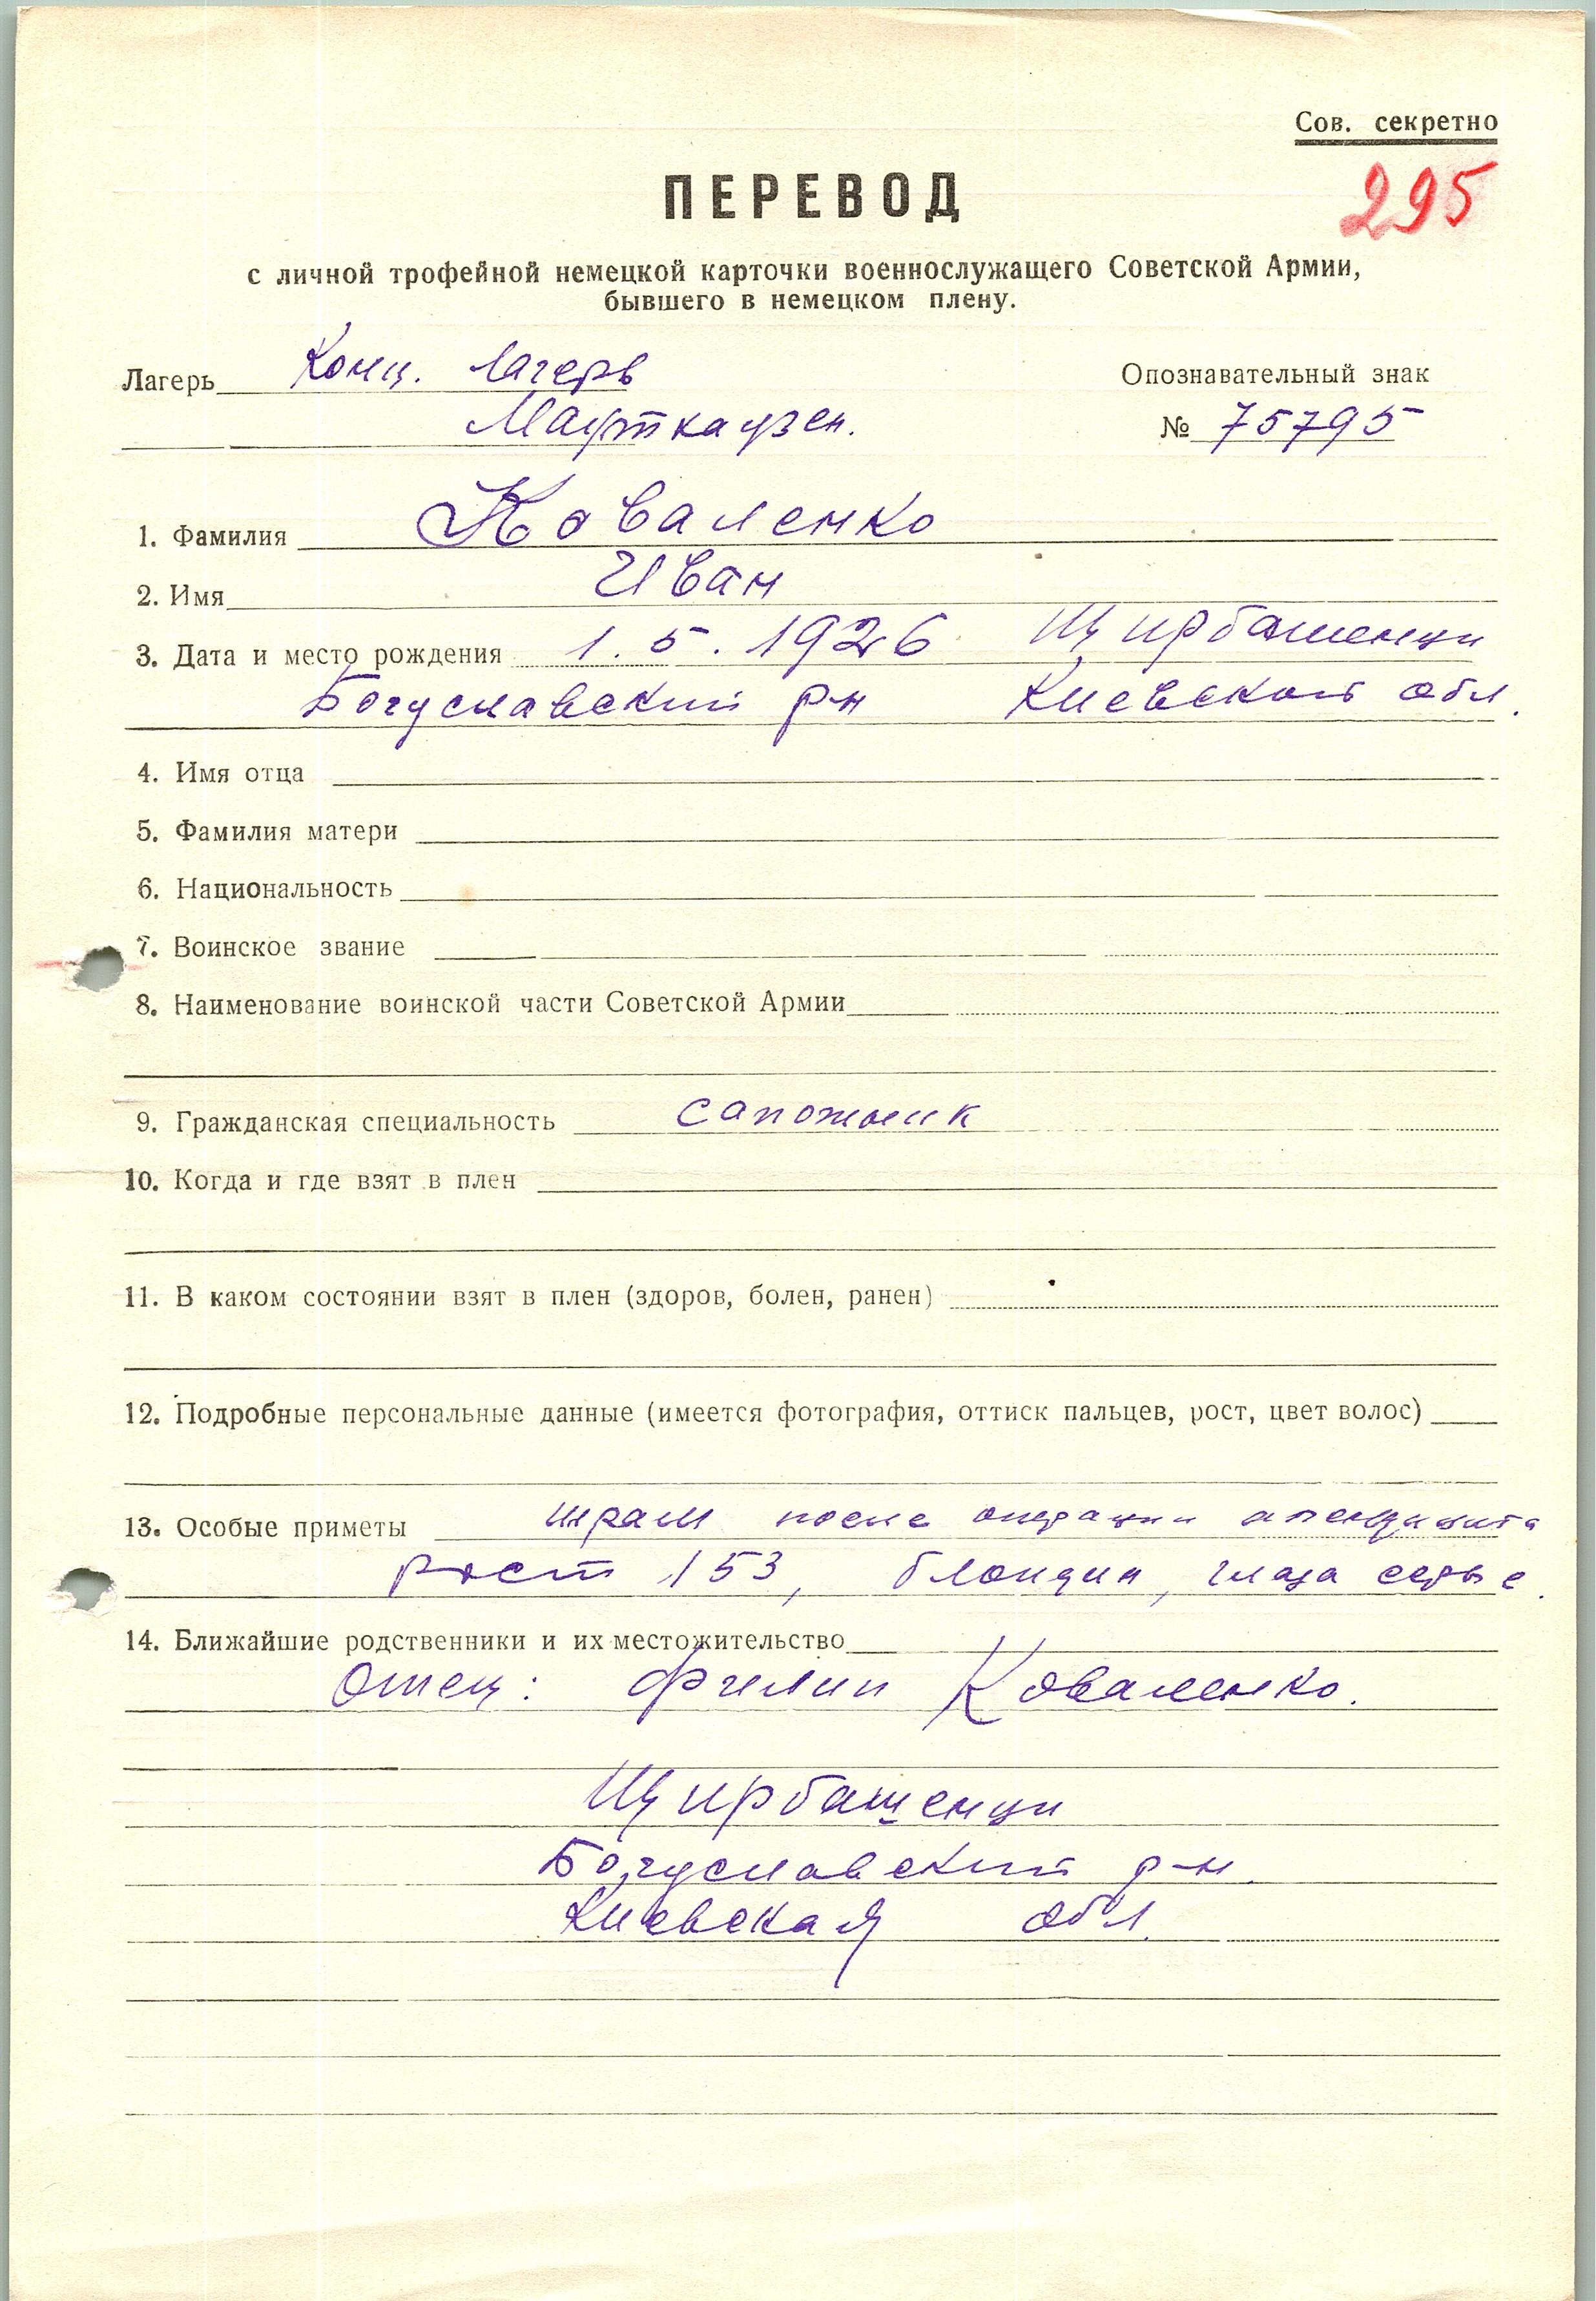 Сов. секретно
ПЕРЕВОД
295
с личной трофейной немецкой карточки военнослужащего Советской Армии,
бывшего в немецком плену.
Лагерь Конц. лагерь
Опознавательный знак
Маутхаузен.
№ 75795
1. Фамилия Коваленко
2. Имя Иван
3. Дата и место рождения 1.5.1926 Щирбашенци
Богуславский р-н Киевской обл.
4. Имя отца
5. Фамилия матери
6. Национальность
7. Воинское звание
8. Наименование воинской части Советской Армии
9. Гражданская специальность сапожник
10. Когда и где взят в плен
11. В каком состоянии взят в плен (здоров, болен, ранен)
12. Подробные персональные данные (имеется фотография, оттиск пальцев, рост, цвет волос)
13. Особые приметы шрам после операции апендицита
рост 153, блондин, глаза серые.
14. Ближайшие родственники и их местожительство
Отец: Филип Коваленко.
Щирбашенци
Богуславский р-н.
Киевская обл.